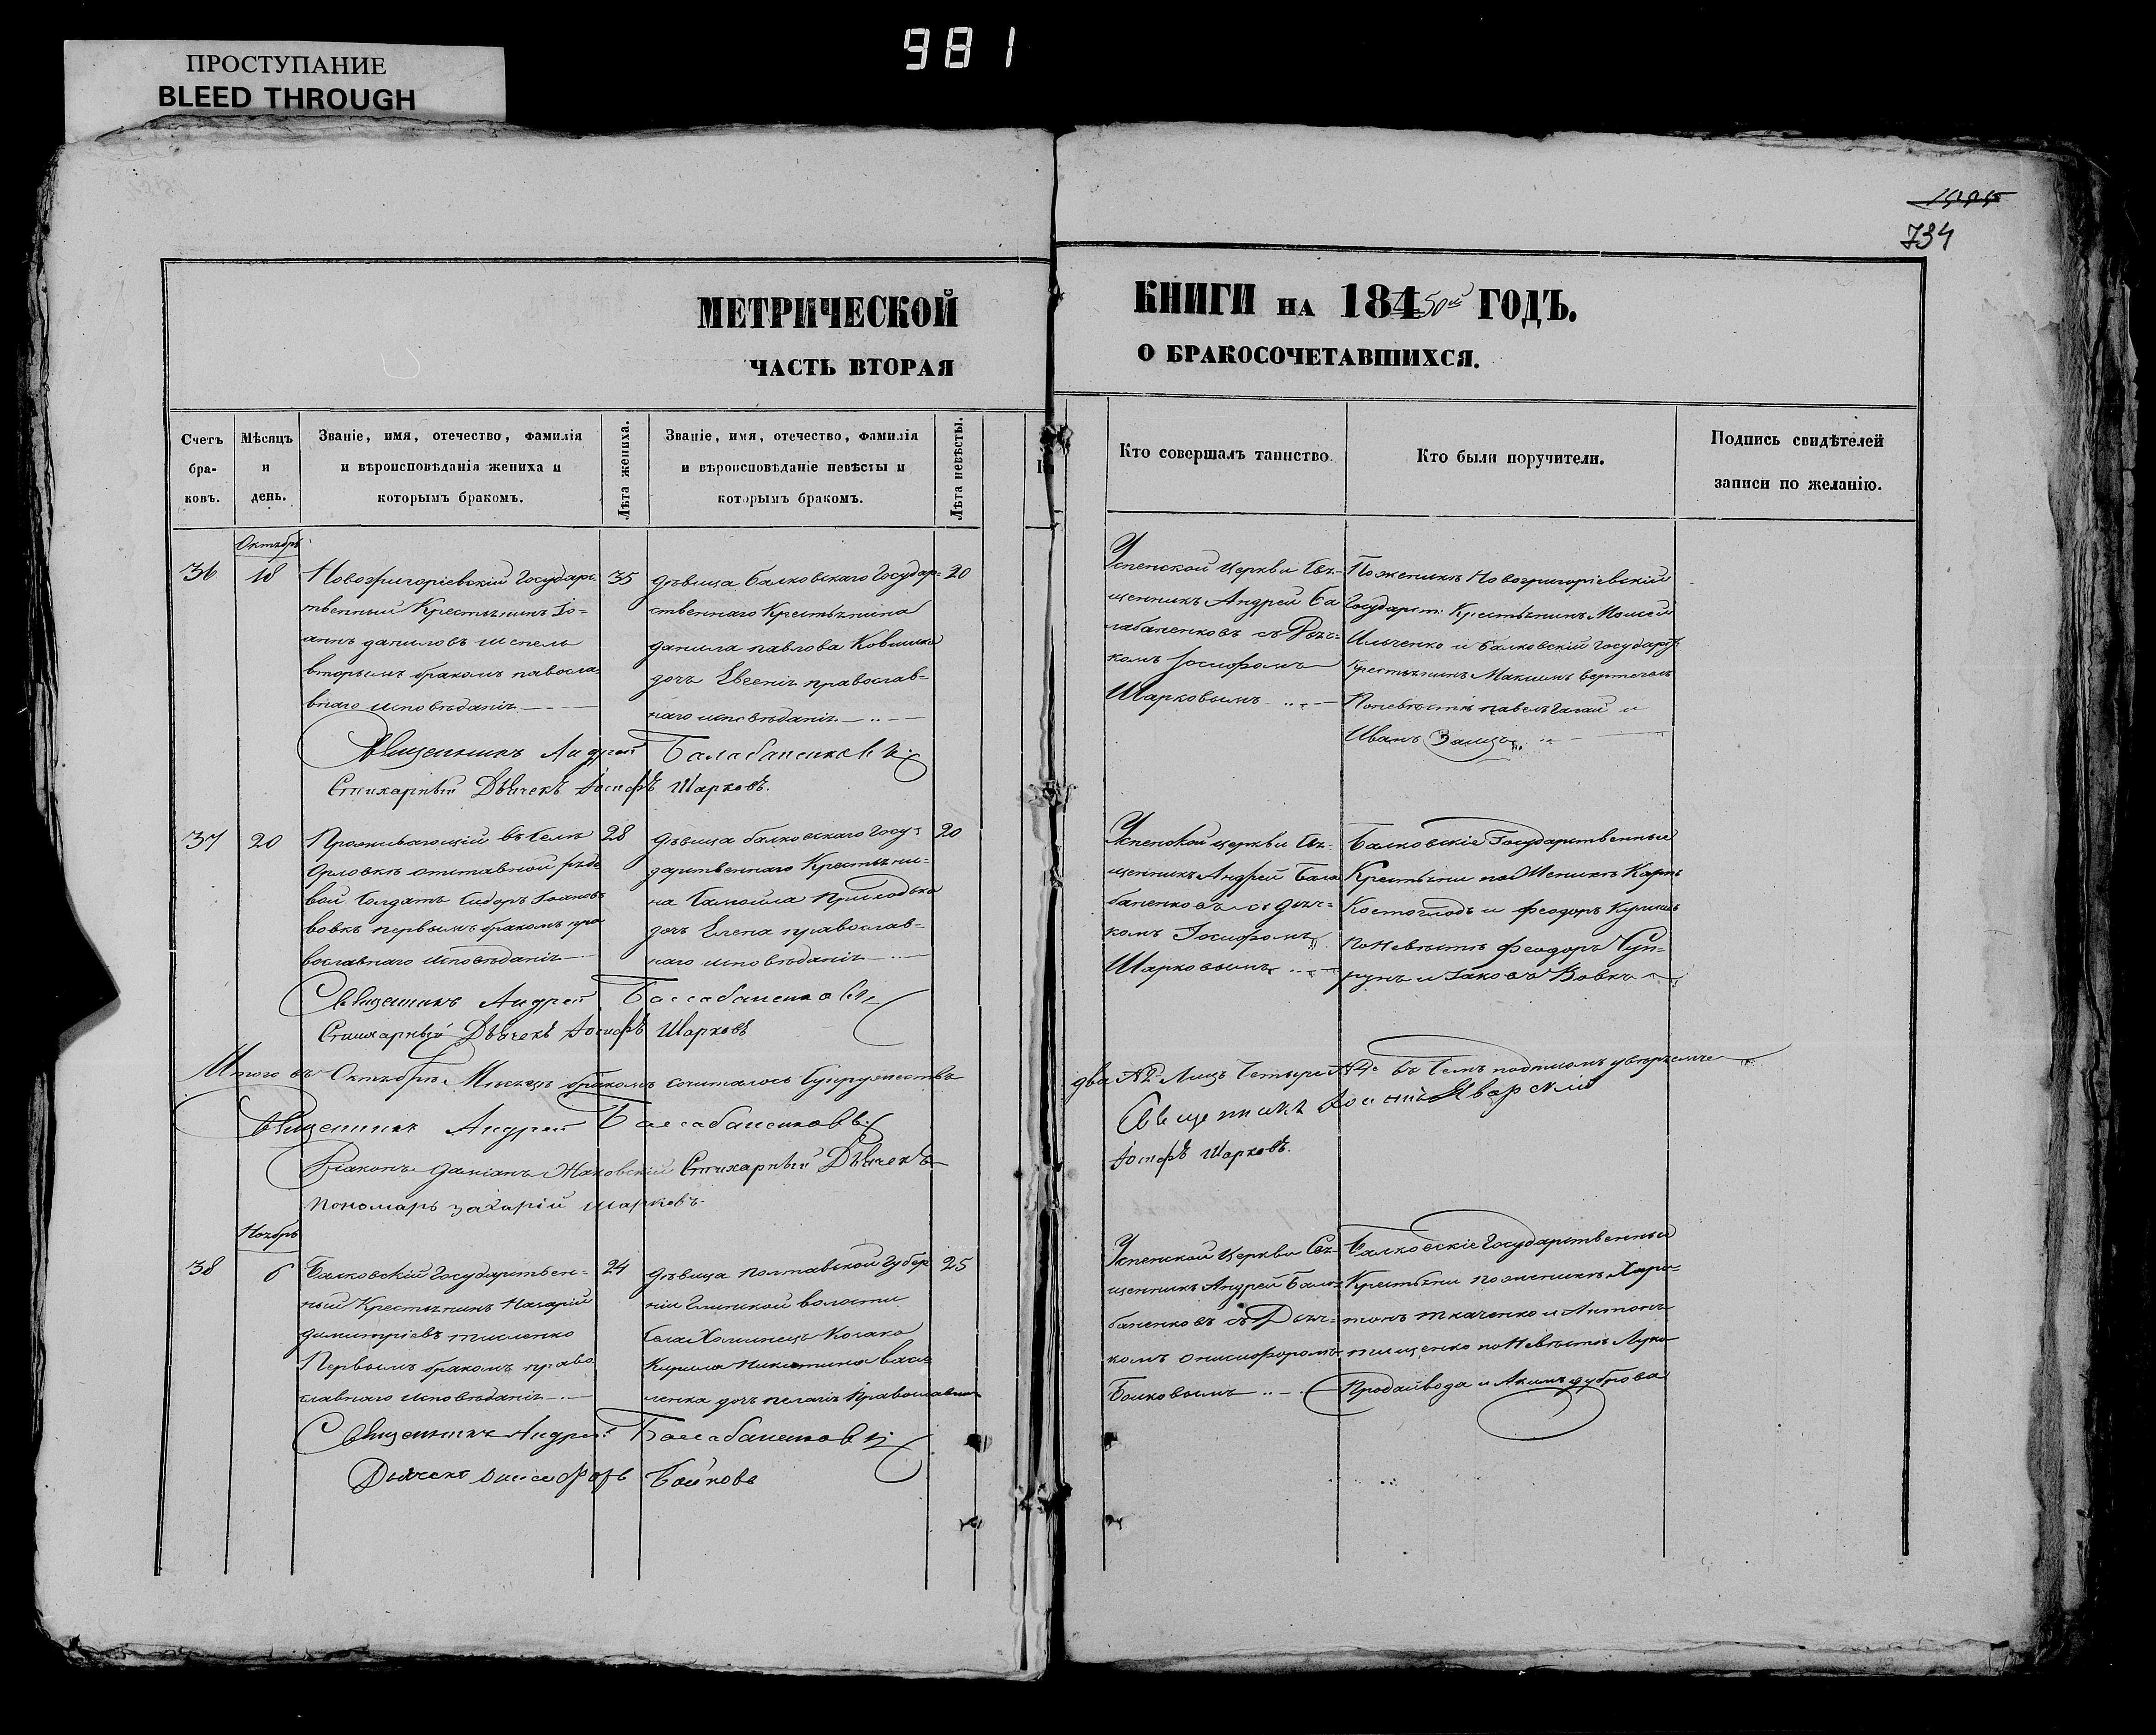 981
ПРОСТУПАНИЕ
BLEED THROUGH
734
МЕТРИЧЕСКОЙ
КНИГИ НА 184 50й ГОДЪ.
ЧАСТЬ ВТОРАЯ
О БРАКОСОЧЕТАВШИХСЯ.
Счетъ бра-ковъ.
Мѣсяцъ и день.
Званіе, имя, отечество, фамилія
и вѣроисповѣданія жениха и
которымъ бракомъ.
Лѣта жениха.
Званіе, имя, отечество, фамилія
и вѣроисповѣданіе невѣсты и
которымъ бракомъ.
Лѣта невѣсты.
Кто совершалъ таинство.
Кто были поручители.
Подпись свидѣтелей
записи по желанію.
Октябрь
36
18
Новогригоріевскій Государс-
твенный Крестьянинъ Іо-
аннъ даниловъ
вторымъ бракомъ павосла-
внаго исповѣданія
35
дѣвица Балковскаго Государ-
ственнаго Крестьянина
данила павлова
дочь Евгенія православ-
наго исповѣданія
20
Успенской Церкви Свя-
щенникъ Андрей Ба
лабаненковъ съ Дьяч-
комъ Іосифомъ
Шарковымъ
Поженихѣ Новогригоріевскій
Государст: Крестьянинъ Моисей
Ильченко и Балковскій государст:
Крестьянинъ Максимъ
Поневѣстѣ павелъ и
Иванъ Заяцъ
Священникъ Андрей Балабаненковъ
Стихарный Дьячекъ Іосифъ Шарковъ.
37
20
Проживающій въ Селѣ
Орловкѣ отставной рядо
вой Солдатъ Сидоръ Іоановъ
вовкъ первымъ бракомъ пра
вославнаго исповѣданія
28
дѣвица балковскаго Госу-
дарственнаго Крестьяни-
на Самойла
дочь Елена православ-
наго исповѣданія
20
Успенской церкви Свя-
щенникъ Андрей Бала
баненковъ съ дьяч-
комъ Іосифомъ
Шарковымъ
Балковскіе Государственные
Крестьяни по Женихѣ Карпъ
Костоглодъ и феодоръ
по Невѣстѣ феодоръ Суп-
рунъ и Іаковъ Вовкъ
Священникъ Андрей Балабаненковъ
Стихарный Дьячекъ Іосифъ Шарковъ
Итого въ Октябрѣ Мѣсяцѣ бракомъ сочиталось Супружествъ
два №2 Лицъ Четыре №4 въ Семъ подписомъ увѣряемъ
Священникъ Андрей Балабаненковъ
Священникъ Яворскій
Діаконъ даміанъ Стихарный Дьячекъ
Іосифъ Шарковъ.
Пономарь захарій шарковъ
Ноябрь
38
6
Балковскій Государствен-
ный Крестьянинъ Назарій
димитріевъ
Первымъ бракомъ право
славнаго исповѣданія
24
дѣвица Полтавской Губер
ніи волости
Села Козака
Кирила Никитина Васи-
ленка дочь пелагія Православна
25
Успенской Церкви Свя-
щенникъ Андрей Бала-
баненковъ съ Дьяч-
комъ онисифоромъ
Бойковымъ
Балковскіе Государственные
Крестьяни поженихѣ Хари-
тонъ ткаченко и Антонъ
тищенко по Невѣстѣ Лука
Продайвода и Акимъ дуброва
Священникъ Андрей Балабаненковъ
Дьячекъ Онисифоръ Бойковъ